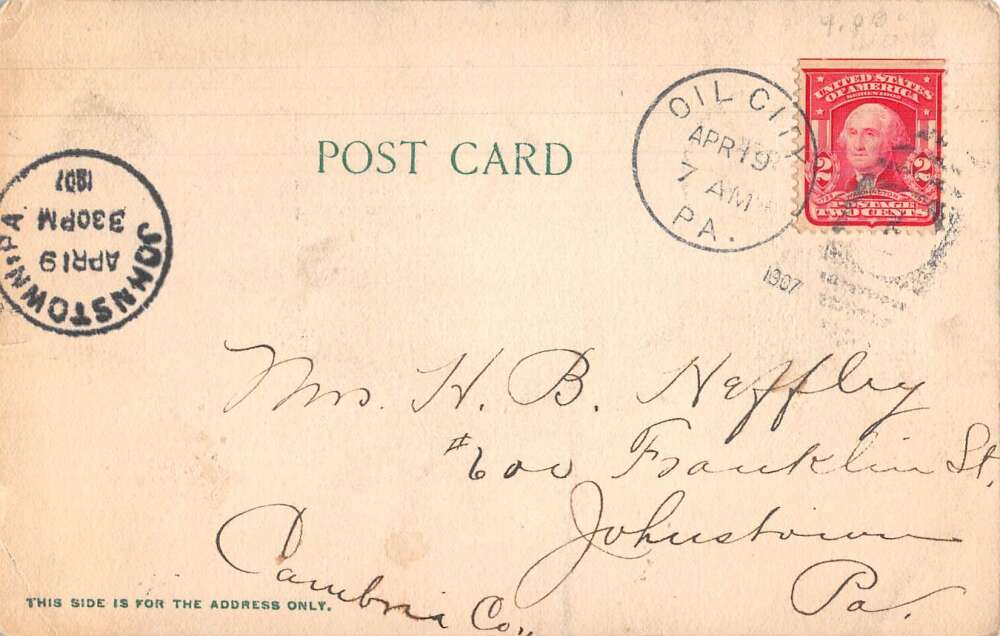 4.00
UNITED STATES
OF AMERICA
SERIES 1902
2 2
WASHINGTON
POSTAGE
TWO CENTS
OIL CITY
APR 19
7 AM
PA.
1907
POST CARD
JOHNSTOWN PA
APR 19
330PM
1907
Mrs. H. B. Heffley
#600 Franklin St.
Johnstown
Cambria Co., Pa.
THIS SIDE IS FOR THE ADDRESS ONLY.